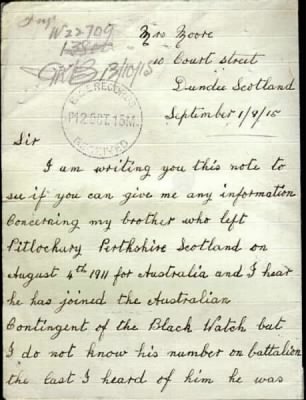 W22709
Mrs Moore
10 Court street
Dundee Scotland
September 1/9/15
13/10/15
RECORDS
12 OCT. 15
RECEIVED
Sir
I am writing you this note to
see if you can give me any information
Concerning my brother who left
Pitlochury Perthshire Scotland on
August 4th 1911 for Australia and I hear
he has joined the Australian
Contingent of the Black Watch but
I do not know his number on battalion
the last I heard of him he was